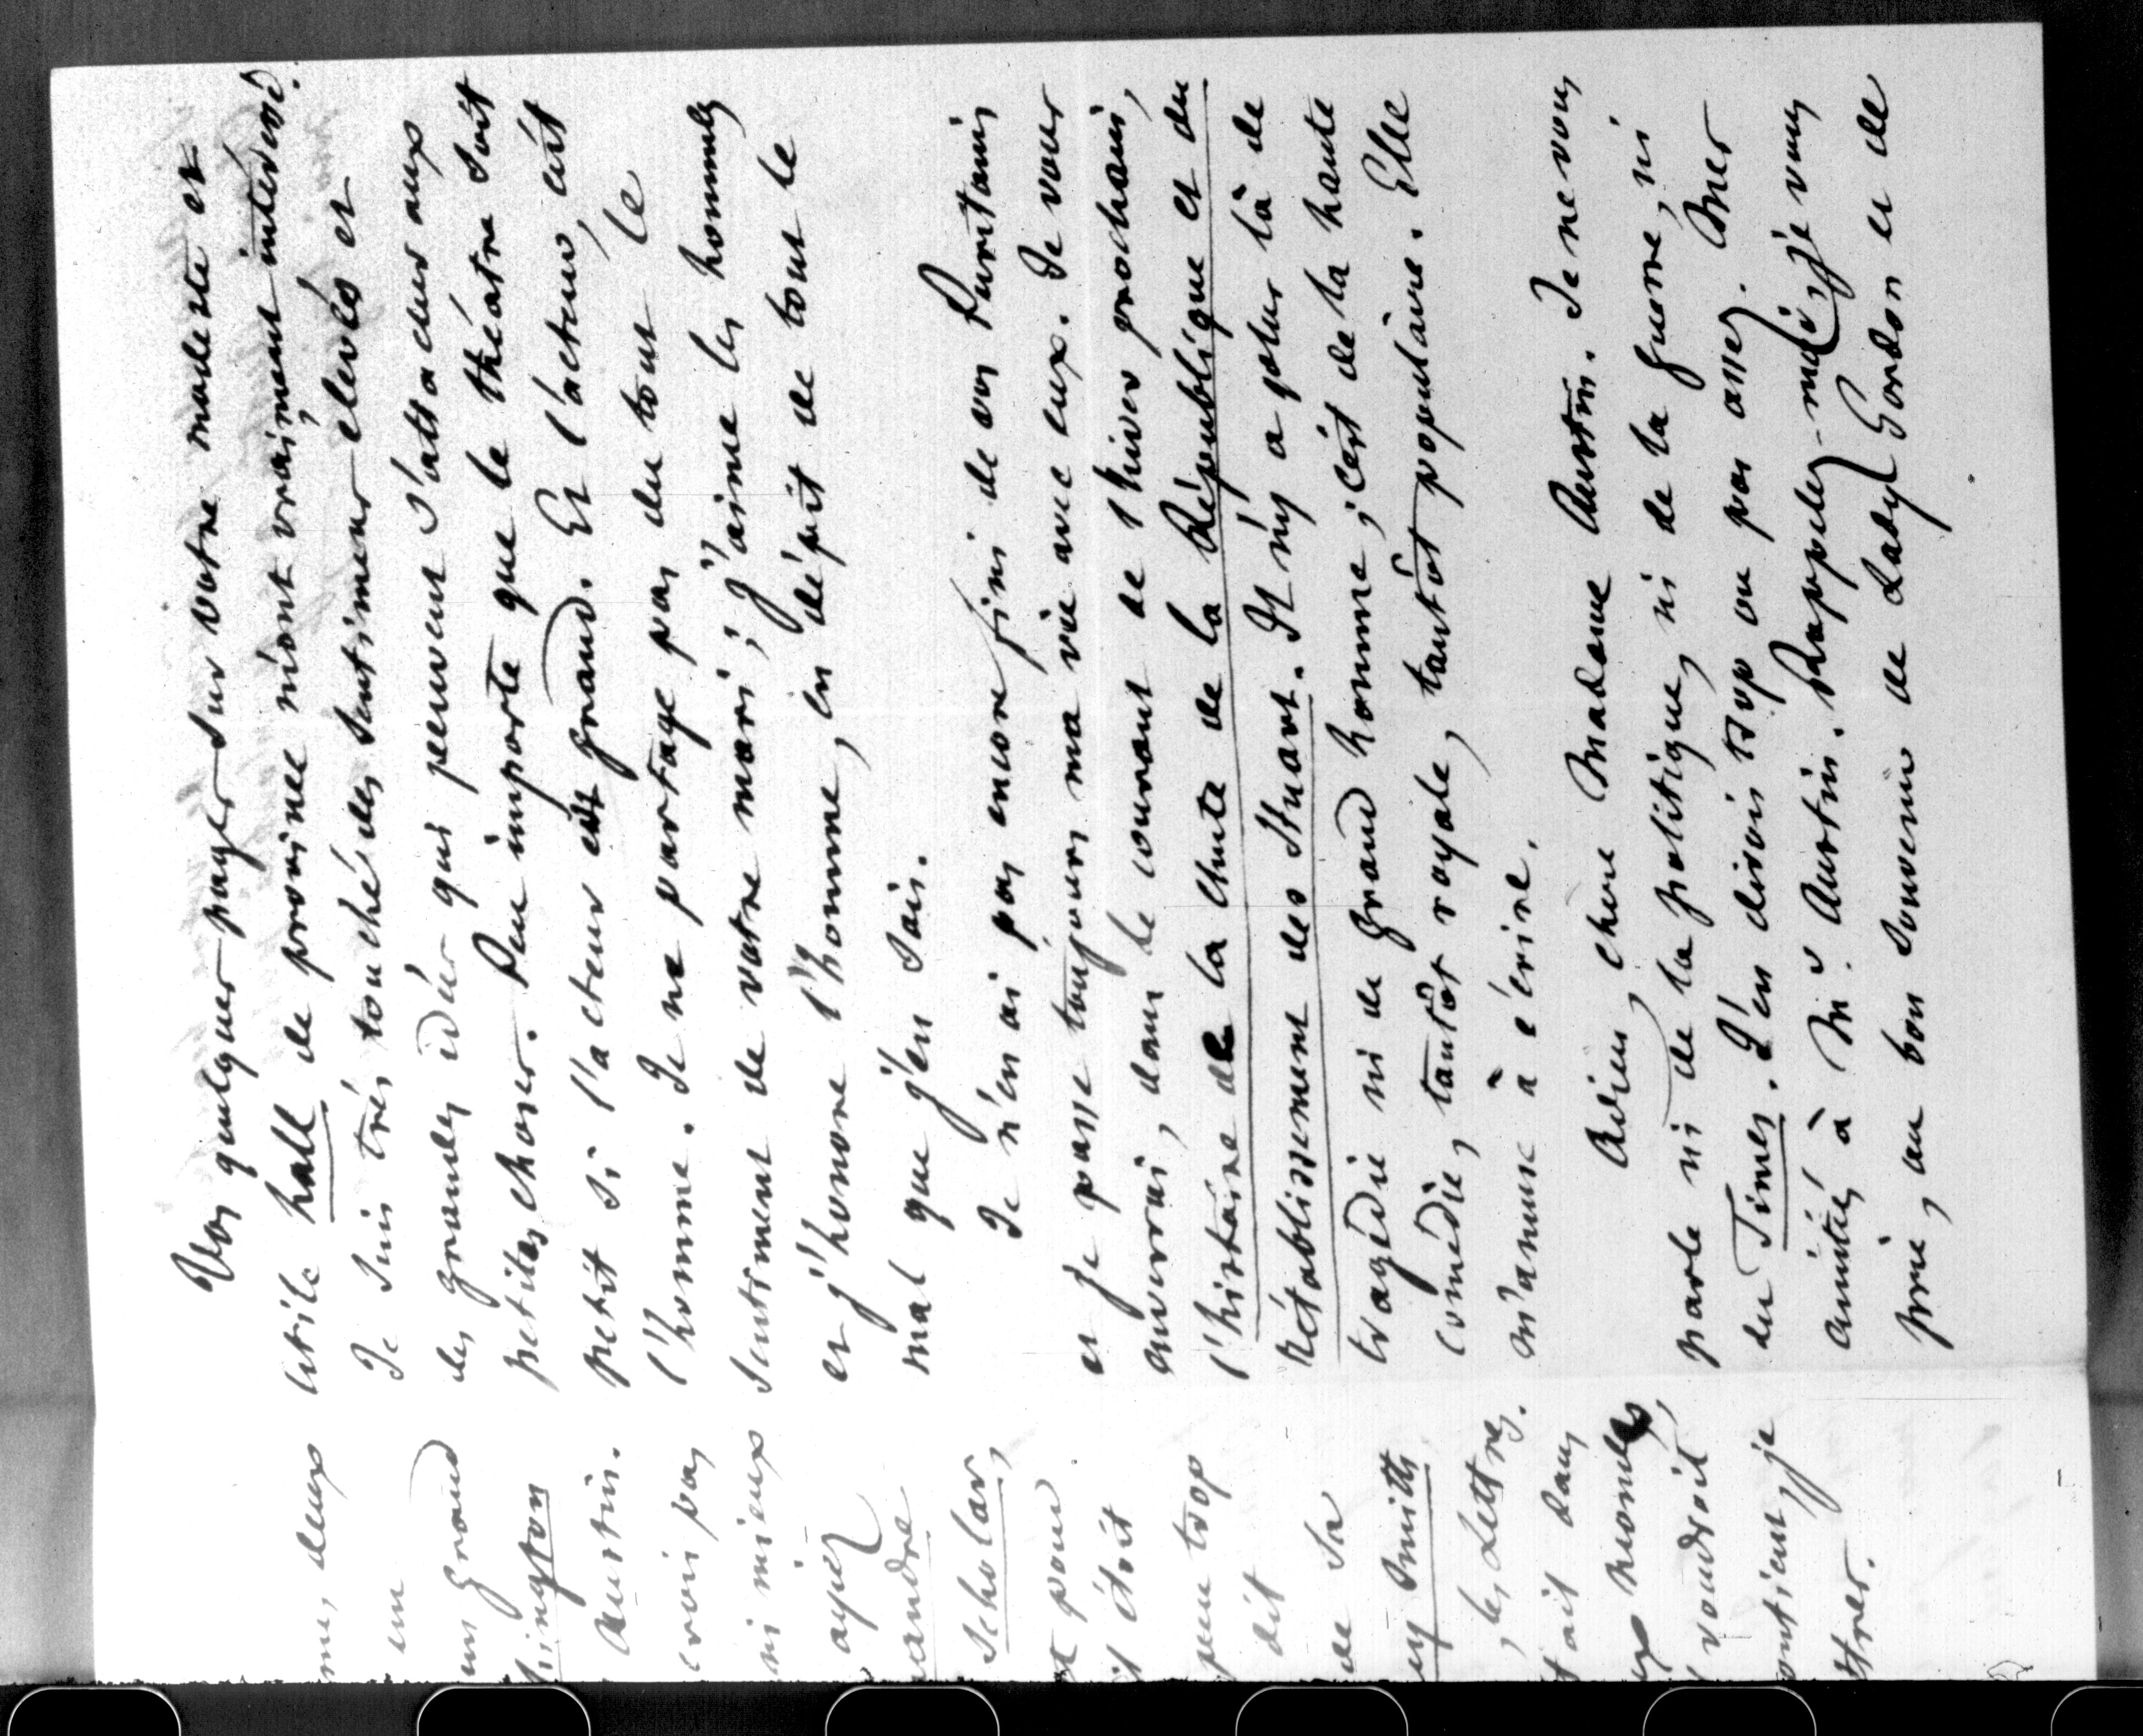 me, deux
un
un grand
tington
Austin.
crois pas
ni mieux
ayiez
andre
Scholar,
t pour
it étoit
peu trop
dit
de Sa
ey Smith
, les Lettres.
t ait dans
ux mondes,
voudroit
ontient, je
ttrer.
Vos quelques pages sur votre modeste et
utile hall de province m'ont vraiment intéressé.
Je suis très touché des sentimens élevés et
des grandes idées qui peuvent s'attacher aux
petites choses. Peu importe que le théâtre soit
petit si l'acteur est grand. Et l'acteur, c'est
l'homme. Je ne partage pas du tout le
sentiment de votre mari ; j'aime les hommes
et j'honore l'homme, en dépit de tout le
mal que j'en sais.
Je n'en ai pas encore fini de vos Puritains
et je passe toujours ma vie avec eux. Je vous
enverrai, dans le courant de l'hiver prochain,
l'histoire de la chute de la République et du
rétablissement des Stuart. Il n'y a plus là de
tragédie ni de grand homme ; c'est de la haute
comédie, tantôt royale, tantôt populaire. Elle
m'amuse à écrire.
Adieu, chère Madame Austin. Je ne vous
parle ni de la politique, ni de la guerre, ni
du Times. J'en dirois trop ou pas assez. Mes
amitiés à Mr. Austin. Rappelez-moi, je vous
prie, au bon souvenir de Lady Gordon et de